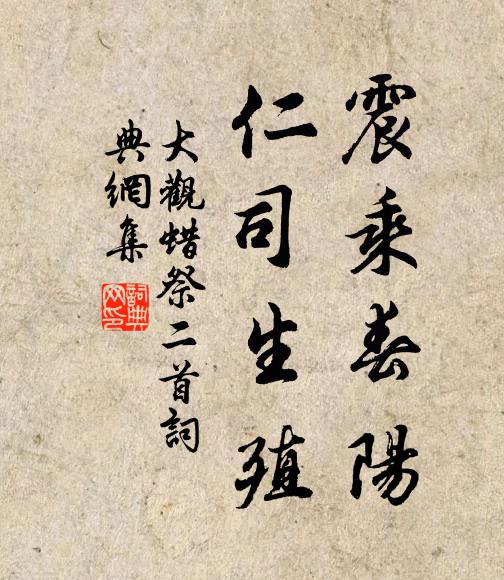 震乘春陽
仁司生殖
大觀蜡祭二首詞
典網集
詞典網印